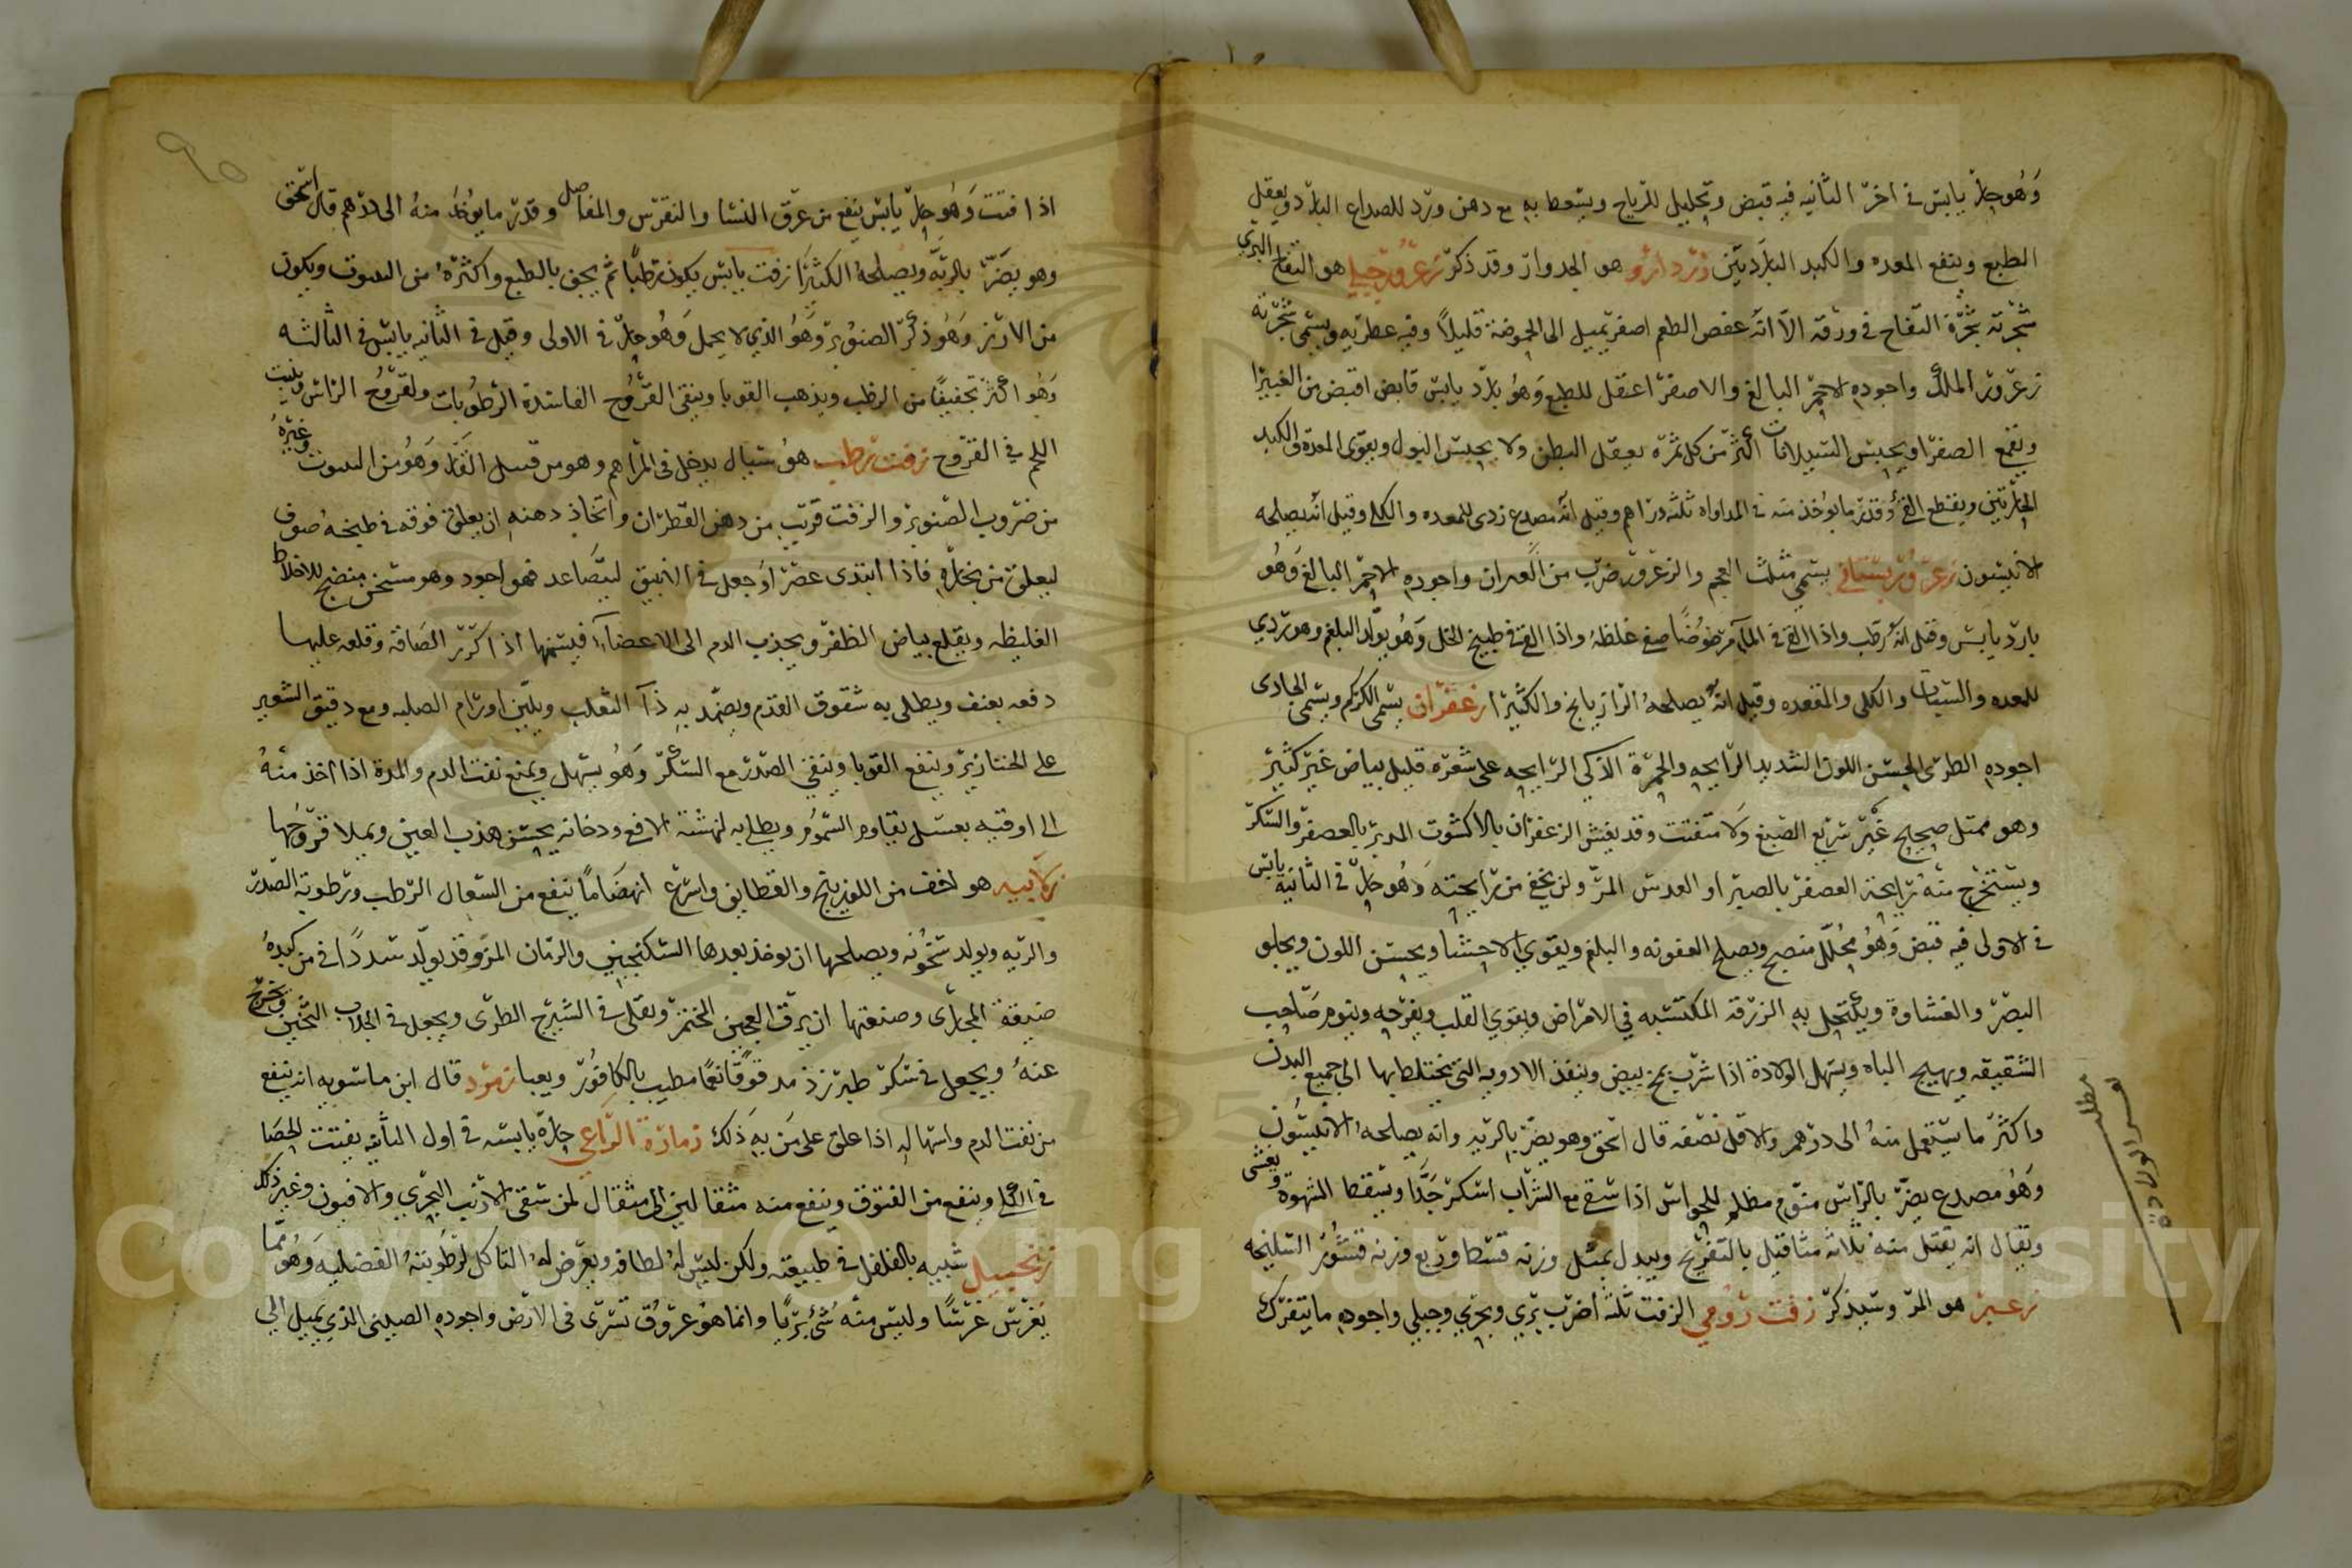 وهو حار يابس في اخر الثانيه فيه قبض وتحليل للرياح ويسعط به مع دهن ورد للصداع البارد ويعقل
الطبع وينفع المعده والكبد الباردتين زرد دارو هو الجدوار وقد ذكر زعرور جبلي هو التفاح البري
شجرته شجرة التفاح في ورقه الا انه عفص الطعم اصفر يميل الى الحموضة قليلا وفيه عطريه ويسمى شجرته
زعرور الملك واجوده الاحمر البالغ والاصفر اعقل للطبع وهو بارد يابس قابض اقبض من الغبيرا
ويقمع الصفرا ويحبس السيلانات اكثر من كل ثمرة يعقل البطن ولا يحبس البول ويقوى المعدة والكبد
الحارتين ويقطع القئ وقدر ما يوخذ منه في المداواه ثلثه دراهم وقيل انه مصدع ردى للمعده والكلى وقيل انه يصلحه
الانيسون زعرور بستاني يسمى مثلث العجم والزعرور ضرب من واجوده الاحمر البالغ وهو
بارد يابس وقيل انه رطب واذا القي في الماء مرضوضا صفى غلظه واذا القي في طبيخ الخل وهو يولد البلغم وهو ردي
للمعده والكلى والمقعده وقيل انه يصلحه الرازيانج والكثيرا زعفران يسمى الكركم ويسمى الجادى
اجوده الطرى الحسن اللون الشديد الرايحه والحمرة الذكى الرايحه على شعره قليل بياض غير كثير
وهو ممتل صحيح غير سريع الصبغ ولا متفتت وقد يغش الزعفران بالاكشوت المدبر بالعصفر والسكر
ويستخرج منه رايحة العصفر بالصبر او العدس المر ولن يخفى من رايحته وهو حار في الثانية يابس
في الاولى فيه قبض وهو محلل منضج ويصلح العفونه والبلغم ويقوي الاحشا ويحسن اللون ويجلو
البصر والغشاوة ويكتحل به الزرقة المكتسبه في الامراض ويقوي القلب ويفرحه وينوم صاحب
الشقيقه ويهيج الباه ويسهل الولادة اذا شرب بمح بيض وينفذ الادويه التي يختلط بها الى جميع البدن
واكثر ما يستعمل منه الى درهم والاقل نصفه قال اسحق وهو يضر بالريه وانه يصلحه الانيسون
وهو مصدع يضر بالراس منوم مظلم للحواس اذا سقي مع الشراب اسكر جدا ويسقط الشهوة ويغشى
ويقال انه يقتل منه ثلاثة مثاقيل بالتفريح وبدل بمثل وزنه قسط وربع وزنه قشور السليخه
زعبر هو المر وسيذكر زفت رومي الزفت ثلثة اضرب بري وبحري وجبلي واجوده ما يتفرك
مطلب
لعسر الولادة
٩٥
اذا فتت وهو حار يابس ينفع من عرق النسا والنقرس والمفاصل وقدر ما يوخذ منه الى درهم قال اسحق
وهو يضر بالريه ويصلحه الكثيرا زفت يابس يكون رطبا ثم يجف بالطبع واكثره من ويكون
من الارز وهو ذكر الصنوبر وهو الذي لا يحمل وهو حار في الاولى وقيل في الثانيه يابس في الثالثه
وهو اكثر تجفيفا من الرطب ويذهب القوبا وينقى القروح الفاسدة الرطوبات ولقروح الراس وينبت
اللحم في القروح زفت رطب هو سيال يدخل في المراهم وهو من قبيل القار وهو من وغيره
من ضروب الصنوبر والزفت قريب من دهن القطران واتخاذ دهنه ان يعلق فوقه في طبخه صوف
ليعلق من بخاره فاذا ابتدى عصر او جعل في الانبيق ليتصاعد فهو اجود وهو مسخن منضج للاخلاط
الغليظه ويقلع بياض الظفر ويجذب الدم الى الاعضاء فيسمنها اذا كرر الصاقه وقلعه عليها
دفعه بعنف ويطلى به شقوق القدم ويضمد به داء الثعلب ويلين اورام الصلبه ومع دقيق الشعير
على الخنازير وينفع القوبا وينقي الصدر مع السكر وهو يسهل ويمنع نفث الدم والمدة اذا اخذ منه
الى اوقيه بعسل يقاوم السموم ويطلى به لنهشة الافعى ودخانه يحسن هذب العين ويملا قروحها
زلابيه هو اخف من اللوزينج والقطايف واسرع انهضاما ينفع من السعال الرطب ورطوبة الصدر
والريه ويولد سخونه ويصلحها ان يوخذ بعدها السكنجبين والرمان المز وقد يولد سددا في من كبده
ضيقة المجارى وصنعتها ان يرق العجين المختمر ويقلى في الشيرج الطرى ويجعل في الجلاب الثخين ويخرج
عنه ويجعل في سكر طبرزذ مدقوقا ناعما مطيب بالكافور ويعبا زمرد قال ابن ماسويه انه ينفع
من نفث الدم واسهاله اذا علق على من به ذلك زمازة الراعي حارة يابسه في اول الثانيه يفتت الحصا
في الكلى وينفع من الفتوق وينفع منه مثقالين الى مثقال لمن سقى الارنب البحري والافيون وغير ذلك
زنجبيل شبيه بالفلفل في طبيعته ولكن ليس له لطافه ويعرض له التاكل لرطوبته الفضليه وهو مما
يغرس غرسا وليس منه شئ بريا وانما هو عروق تسرى في الارض واجوده الصينى الذي يميل الى